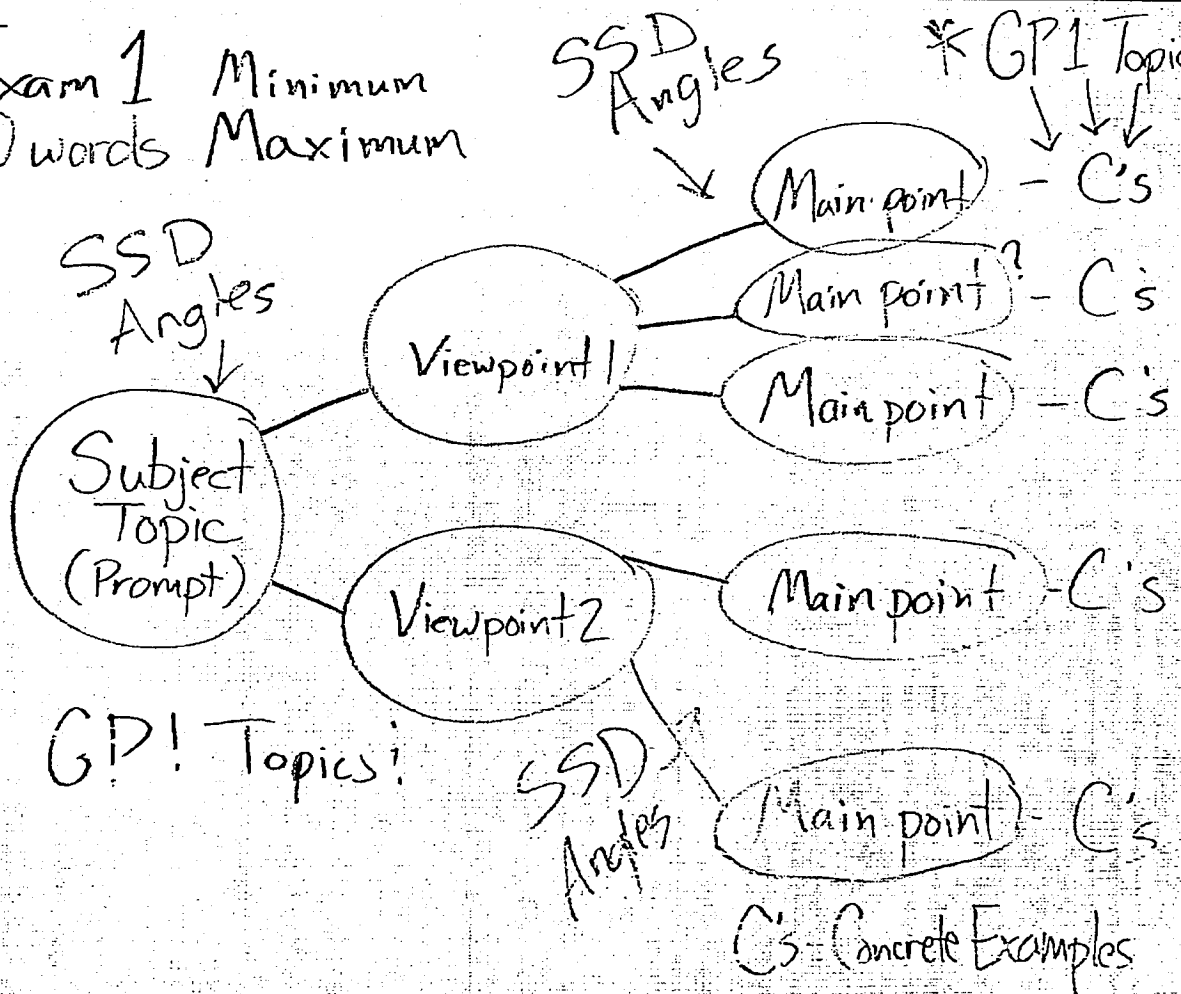 xam 1 Minimum
words Maximum
SSD
Angles
* GP1 Topic
Main point - C's
SSD
Angles
Main point? - C's
Viewpoint 1
Main point - C's
Subject
Topic
(Prompt)
Viewpoint 2
Main point - C's
GP! Topics:
SSD
Angles
Main point - C's
C's - Concrete Examples